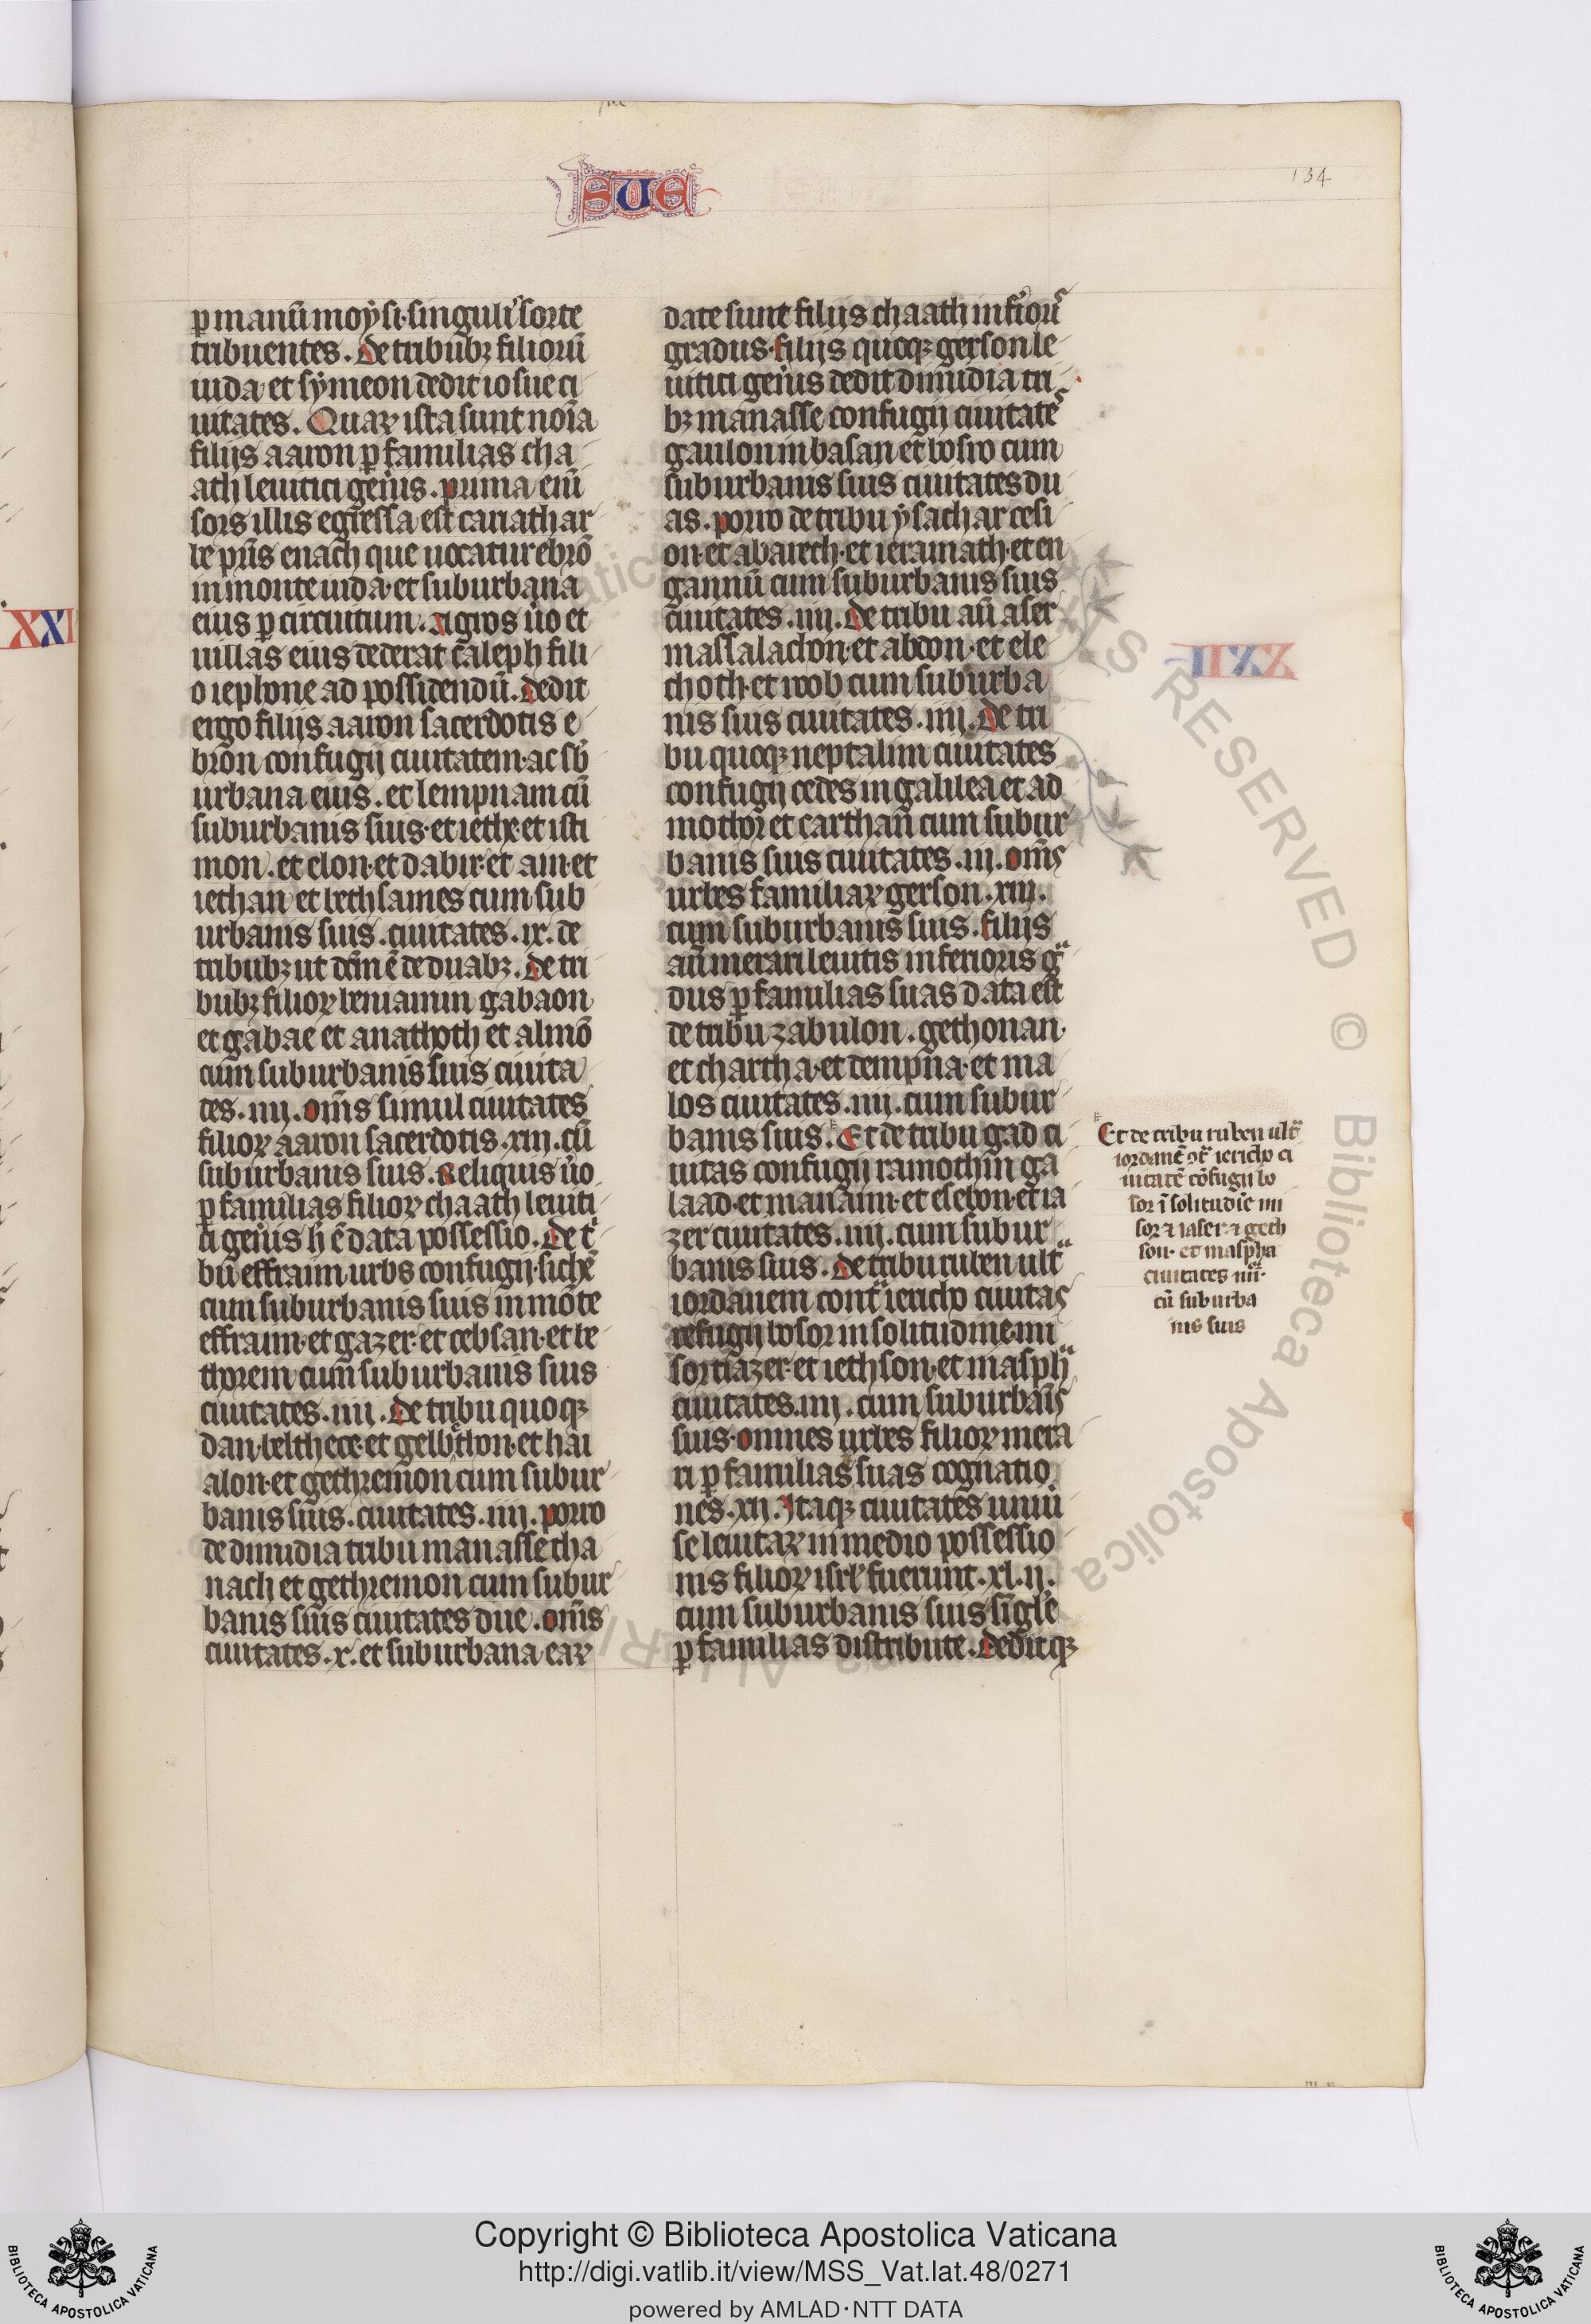 SUE
134
p manū moysi. singulis sorte
tribuentes. de tribubꝫ filiorū
iuda et symeon dedit iosue ci
uitates. Quaꝝ ista sunt noīa
filijs aaron ꝑ familias cha
ath leuitici geñis. prima enī
sors illis egressa est cariathar
be pr̃is enach que uocatur ebrō
in monte iuda. et suburbana
eius ꝑ circuitum. Agros ůo et
uillas eius dederat caleph fili
o iephone ad possidendū. dedit
ergo filijs aaron sacerdotis e
bron confugij ciuitatem. ac sb̓
urbana eius. et lempnam cū
suburbanis suis. et iether. et isti
mon. et elon. et dabir. et ain. et
iethan et bethsames cum sub
urbanis suis. ciuitates. ix. de
tribubꝫ ut dc̄m ē de duabꝫ. de tri
bubꝫ filioꝝ beniamin gabaon
et gabae et anathoth et almō
cum suburbanis suis ciuita
tes. iiij. om̄s simul ciuitates
filioꝝ aaron sacerdotis. xiij. cū
suburbanis suis. Reliquis ůo
ꝑ familias filioꝝ chaath leuiti
ci geñis h̄ ē data possessio. de t
bu effraim urbs confugij. sichē
cum suburbanis suis in mōte
effraim. et gazer. et cebsan. et be
thorem cum suburbanis suis
ciuitates. iiij. de tribu quoqꝫ
dan. belthece. et gelbethon. et hai
alon. et gethremon cum subur
banis suis. ciuitates. iiij. porro
de dimidia tribu manasse tha
nach et gethremon cum subur
banis suis ciuitates due. om̄s
ciuitates. x. et suburbana eaꝝ
date sunt filijs chaath inferior̄
gradus. filijs quoqꝫ gerson le
uitici geñis dedit dimidia tri
bꝫ manasse confugij ciuitates
gaulon in basan et bosro cum
suburbanis suis ciuitates du
as. porro de tribu ysachar cesi
on. et abareth. et ieramath. et en
gannū cum suburbanis suis
ciuitates. iiij. de tribu aū aser
massalachon. et abdon. et ele
choth. et roob cum suburba
nis suis ciuitates. iiij. de tri
XXII
bu quoqꝫ neptalim ciuitates
confugij cedes in galilea et ad
mothor et carthan cum subur
banis suis ciuitates. iij. om̄s
urbes familiaꝝ gerson. xiij.
cum suburbanis suis. filijs
aū merari leuitis inferioris gͣ
dus ꝑ familias suas data est
de tribu zabulon. gethonan.
et chartha. et dempna. et ma
los ciuitates. iiij. cum subur
banis suis. Et de tribu gad ci
uitas confugij ramoth in ga
laad. et manaim. et esebon. et ia
zer ciuitates. iiij. cum subur
banis suis. de tribu ruben ultͣ
iordanem contͣ iericho ciuitas
refugij bosor in solitudine mi
sor et iazer. et iethson. et masphͣ
ciuitates. iiij. cum suburbanis
suis. omnes urbes filioꝝ mera
ri ꝑ familias suas cognatio
nes. xij. Itaqꝫ ciuitates uniů
se leuitaꝝ in medio possessio
nis filioꝝ isrl̓ fuerunt. xl. ij.
cum suburbanis suis singl̓e
ꝑ familias distribute. deditqꝫ
Et de tribu ruben ultͣ
iordanē ↄtͣ iericho ci
uitatē cōfugij bo
sor ī solitudīe mi
sor ⁊ iaser. ⁊ geth
son. et maspha
ciuitates iiij.
cū suburba
nis suis
XXI
Copyright © Biblioteca Apostolica Vaticana
http://digi.vatlib.it/view/MSS_Vat.lat.48/0271
powered by AMLAD·NTT DATA
BIBLIOTECA APOSTOLICA VATICANA
BIBLIOTECA APOSTOLICA VATICANA